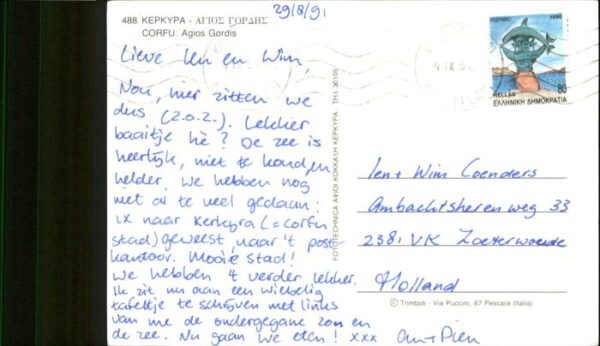 29/8/91
488 ΚΕΡΚΥΡΑ - ΑΓΙΟΣ ΓΟΡΔΗΣ
CORFU: Agios Gordis
Lieve Ien en Wim,
Nou, hier zitten we
dus (z.o.z.). Lekker
baaitje hè? De zee is
heerlijk, niet te koud, en
helder. We hebben nog
niet al te veel gedaan:
1x naar Kerkyra (= corfu
stad) geweest, naar 't post-
kantoor. Mooie stad!
We hebben 't verder lekker.
Ik zit nu aan een wiebelig
tafeltje te schrijven met links
van me de ondergegane zon en
de zee. Nu gaan we eten! xxx
+ Pien
ΡΕΘΥΜΝΟ 1990
80
ΕΛΛΗΝΙΚΗ ΔΗΜΟΚΡΑΤΙΑ
HELLAS
Ien + Wim Coenders
Ambachtsherenweg 33
2381 VK Zoeterwoude
Holland
© Trimboli - Via Puccini, 67 Pescara (Italia)